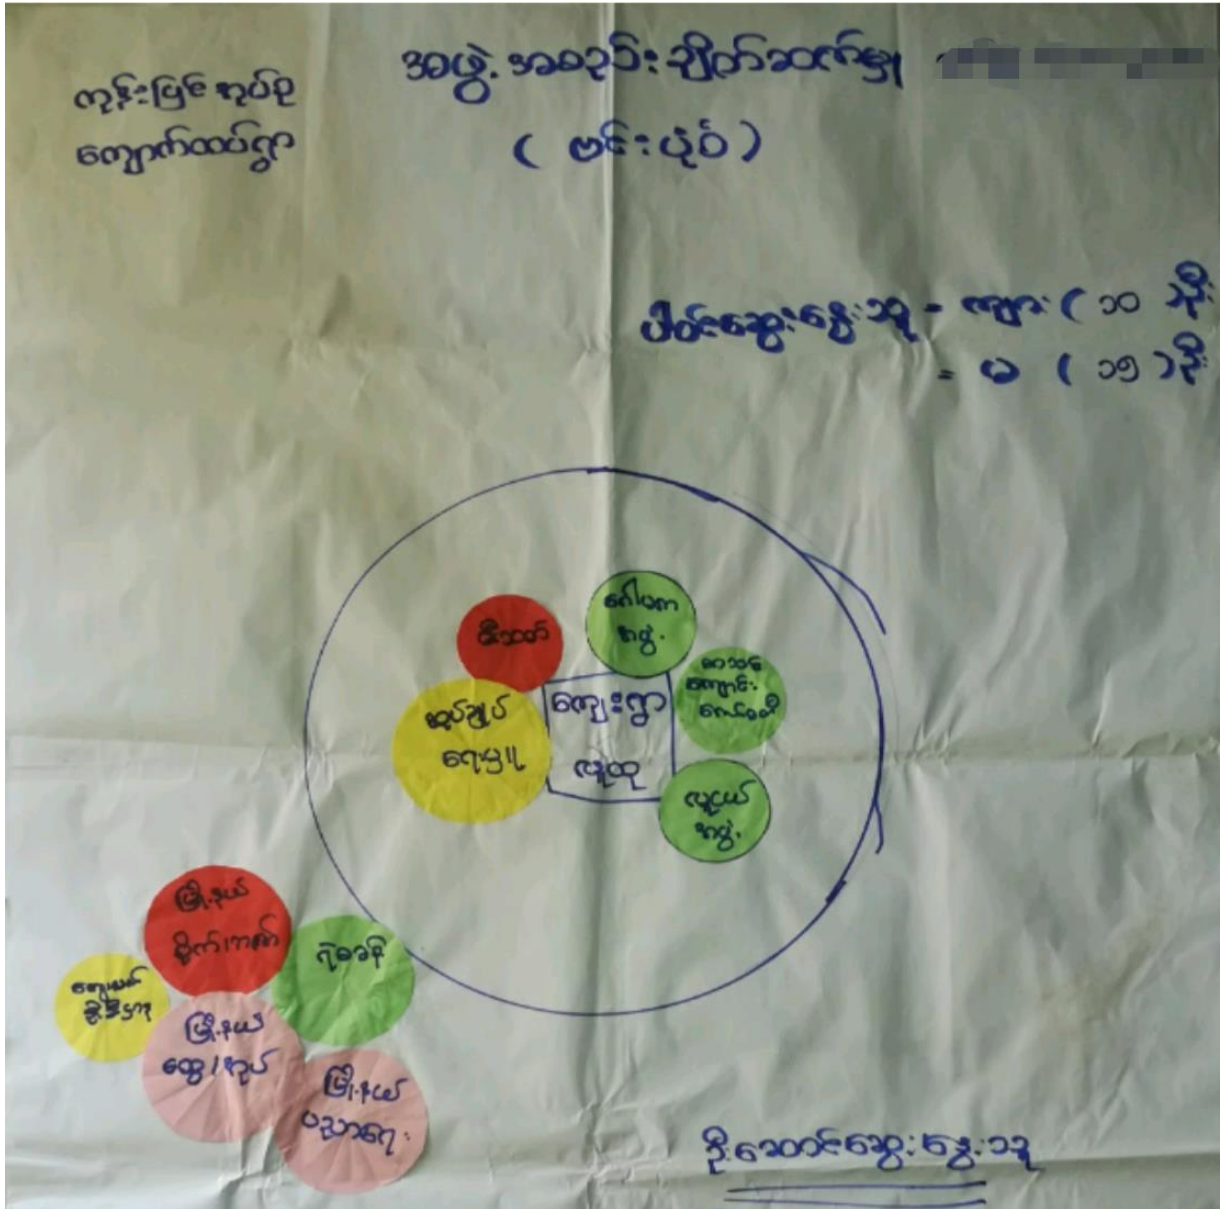 ကုန်းမြင်းအုပ်စု
ကျောက်ထပ်ရွာ
အဖွဲ့အစည်းချိတ်ဆက်မှု
( ဗင်းပုံစံ )
ပါဝင်ဆွေးနွေးသူ = ကျား ( ၁၀ ) ဦး
= မ ( ၁၅ ) ဦး
ဂေါပက
အဖွဲ့
မီးသတ်
ကျောင်း
အုပ်ချုပ်
ရေးမှူး
ကျေးရွာ
လူထု
လူငယ်
အဖွဲ့
မြို့နယ်
စိုက်/ဘဏ်
ရဲစခန်း
ကျေးလက်
မြို့နယ်
ထွေ/အုပ်
မြို့နယ်
ပညာရေး
ဦးဆောင်ဆွေးနွေးသူ